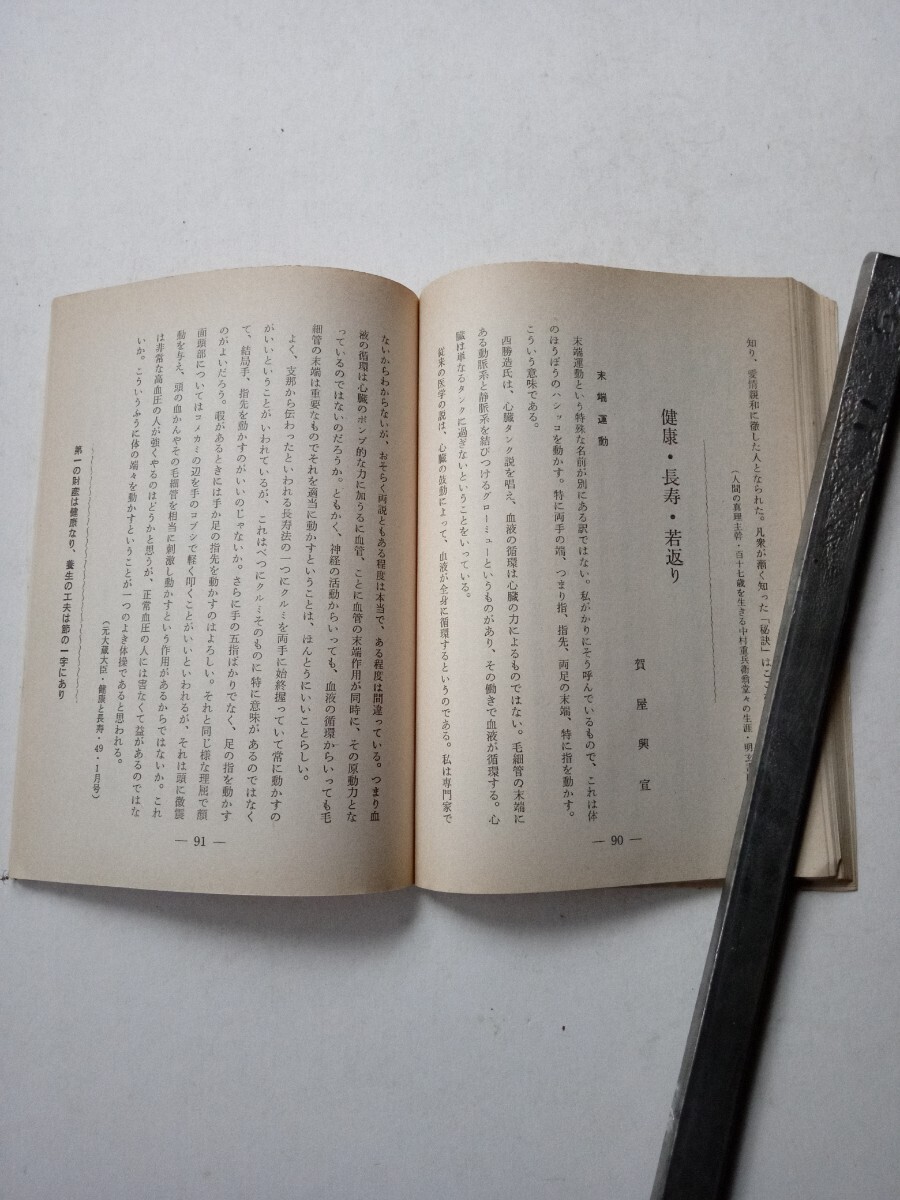 知り、愛情親和に徹した人となられた。凡衆が漸く知った「秘訣」はこ
（人間の真理主幹・百十七歳を生きる中村重兵衛翁堂々の生涯・明玄
健康・長寿・若返り
賀屋興宣
末端運動
末端運動という特殊な名前が別にある訳ではない。私がかりにそう呼んでいるもので、これは体
のほうぼうのハシッコを動かす。特に両手の端、つまり指、指先、両足の末端、特に指を動かす。
こういう意味である。
西勝造氏は、心臓タンク説を唱え、血液の循環は心臓の力によるものではない。毛細管の末端に
ある動脈系と静脈系を結びつけるグローミューというものがあり、その働きで血液が循環する。心
臓は単なるタンクに過ぎないということをいっている。
従来の医学の説は、心臓の鼓動によって、血液が全身に循環するというのである。私は専門家で
— 90 —
ないからわからないが、おそらく両説ともある程度は本当で、ある程度は間違っている。つまり血
液の循環は心臓のポンプ的な力に加うるに血管、ことに血管の末端作用が同時に、その原動力とな
っているのではないのだろうか。ともかく、神経の活動からいっても、血液の循環からいっても毛
細管の末端は重要なものでそれを適当に動かすということは、ほんとうにいいことらしい。
よく、支那から伝わったといわれる長寿法の一つにクルミを両手に始終握っていて常に動かすの
がいいということがいわれているが、これはべつにクルミそのものに特に意味があるのではなく
て、結局手、指先を動かすのがいいのじゃないか。さらに手の五指ばかりでなく、足の指を動かす
のがよいだろう。暇があるときには手か足の指先を動かすのはよろしい。それと同じ様な理屈で顔
面頭部についてはコメカミの辺を手のコブシで軽く叩くことがいいといわれるが、それは頭に微震
動を与え、頭の血かんやその毛細管を相当に刺激し動かすという作用があるからではないか。これ
は非常な高血圧の人が強くやるのはどうかと思うが、正常血圧の人には害なくて益があるのではな
いか。こういうふうに体の端々を動かすということが一つのよき体操であると思われる。
（元大蔵大臣・健康と長寿・49・1月号）
第一の財産は健康なり、養生の工夫は節の一字にあり
— 91 —